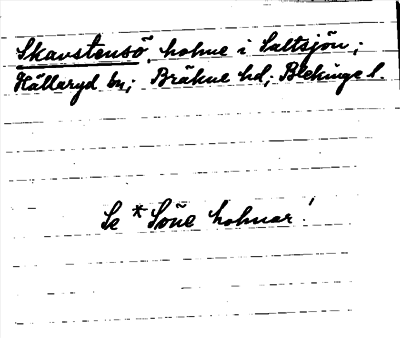 Skavstensö, holme i Saltsjön;
Hällaryd sn; Bräkne hd; Blekinge l.
Se *Söñe holmar!